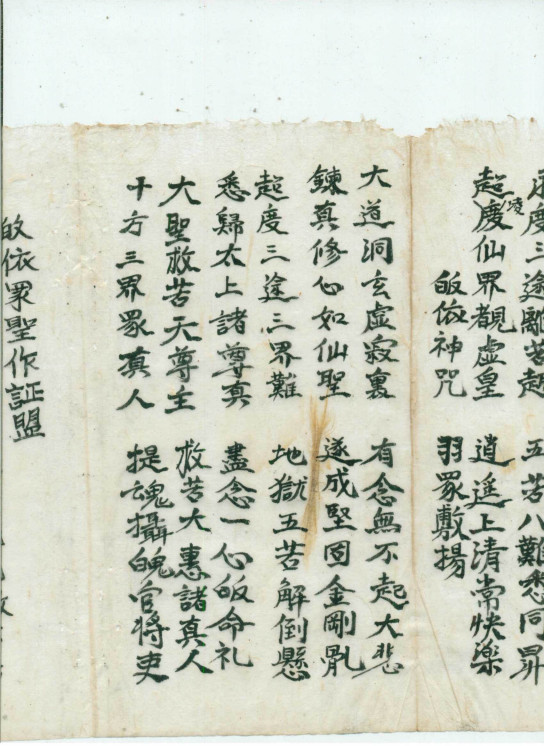 度三途離苦趣 五苦八難悉同昇
超凌度仙界覩虛皇 逍遥上清常快樂
皈依神咒 羽眾敷揚
大道洞玄虛寂裏 有念無不起大悲
鍊真修心如仙聖 遂成堅固金剛骪
超度三途三界難 地獄五苦解倒懸
悉歸太上諸尊真 盡念一心皈命礼
大聖救苦天尊主 救苦大惠諸真人
十方三界眾真人 提魂攝魄官将吏
皈依眾聖作証盟